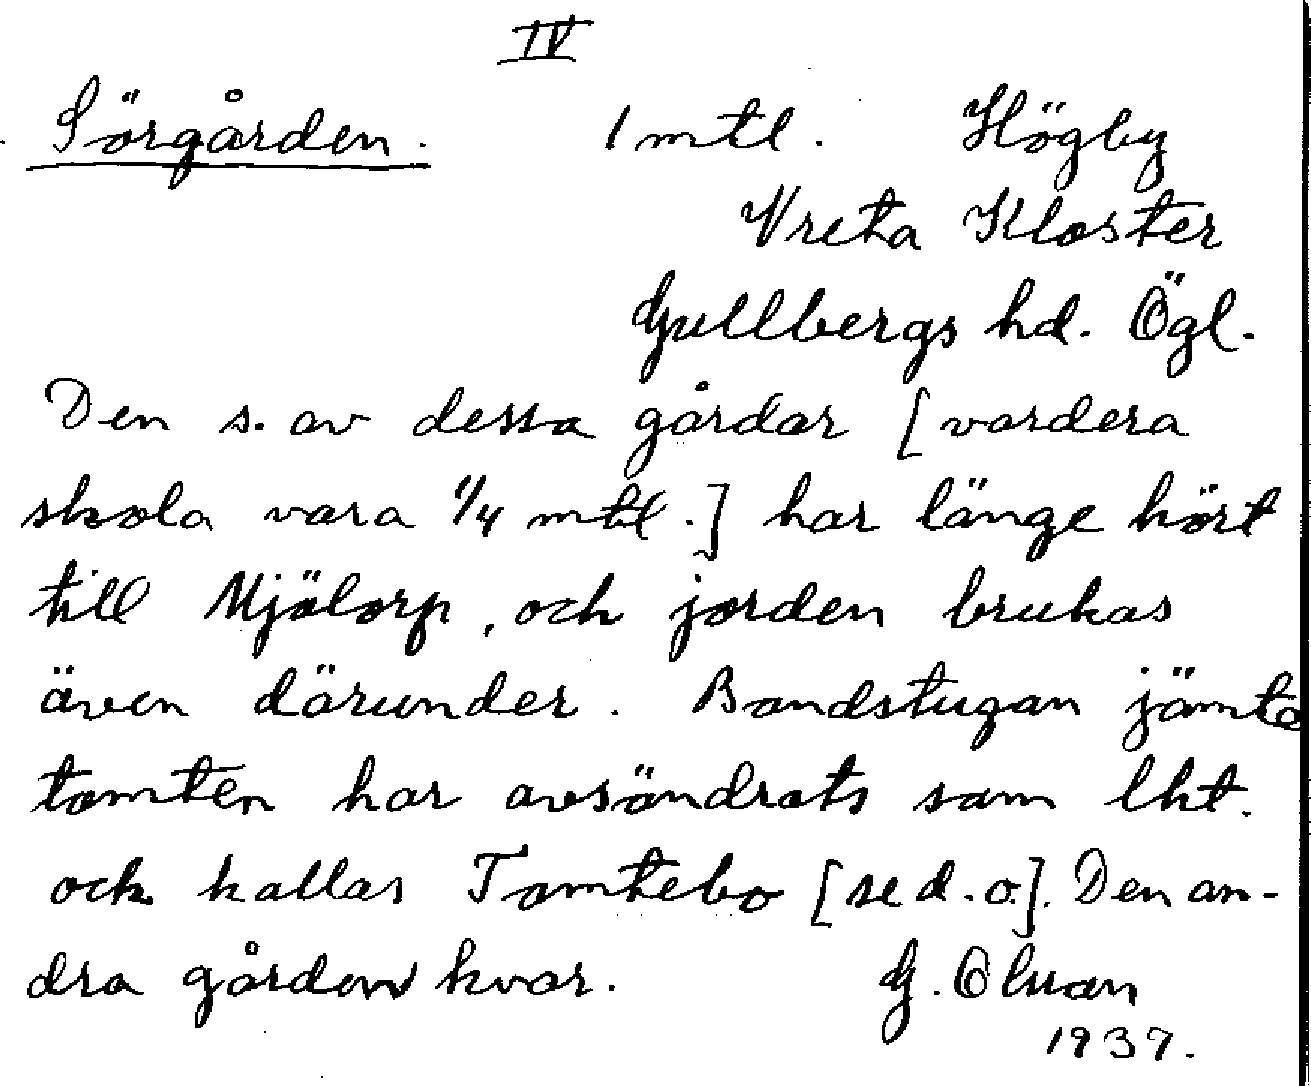 IV
Sörgården. 1 mtl. Högby
Vreta Kloster
Gullbergs hd. Ögl.
Den s. av dessa gårdar [vardera
skola vara 1/4 mtl.] har länge hört
till Mjölorp, och jorden brukas
även därunder. Bondstugan jämte
tomten har avsöndrats som lht.
och kallas Tomtebo [se d. o.]. Den an-
dra gården kvar. G. Olson
1937.